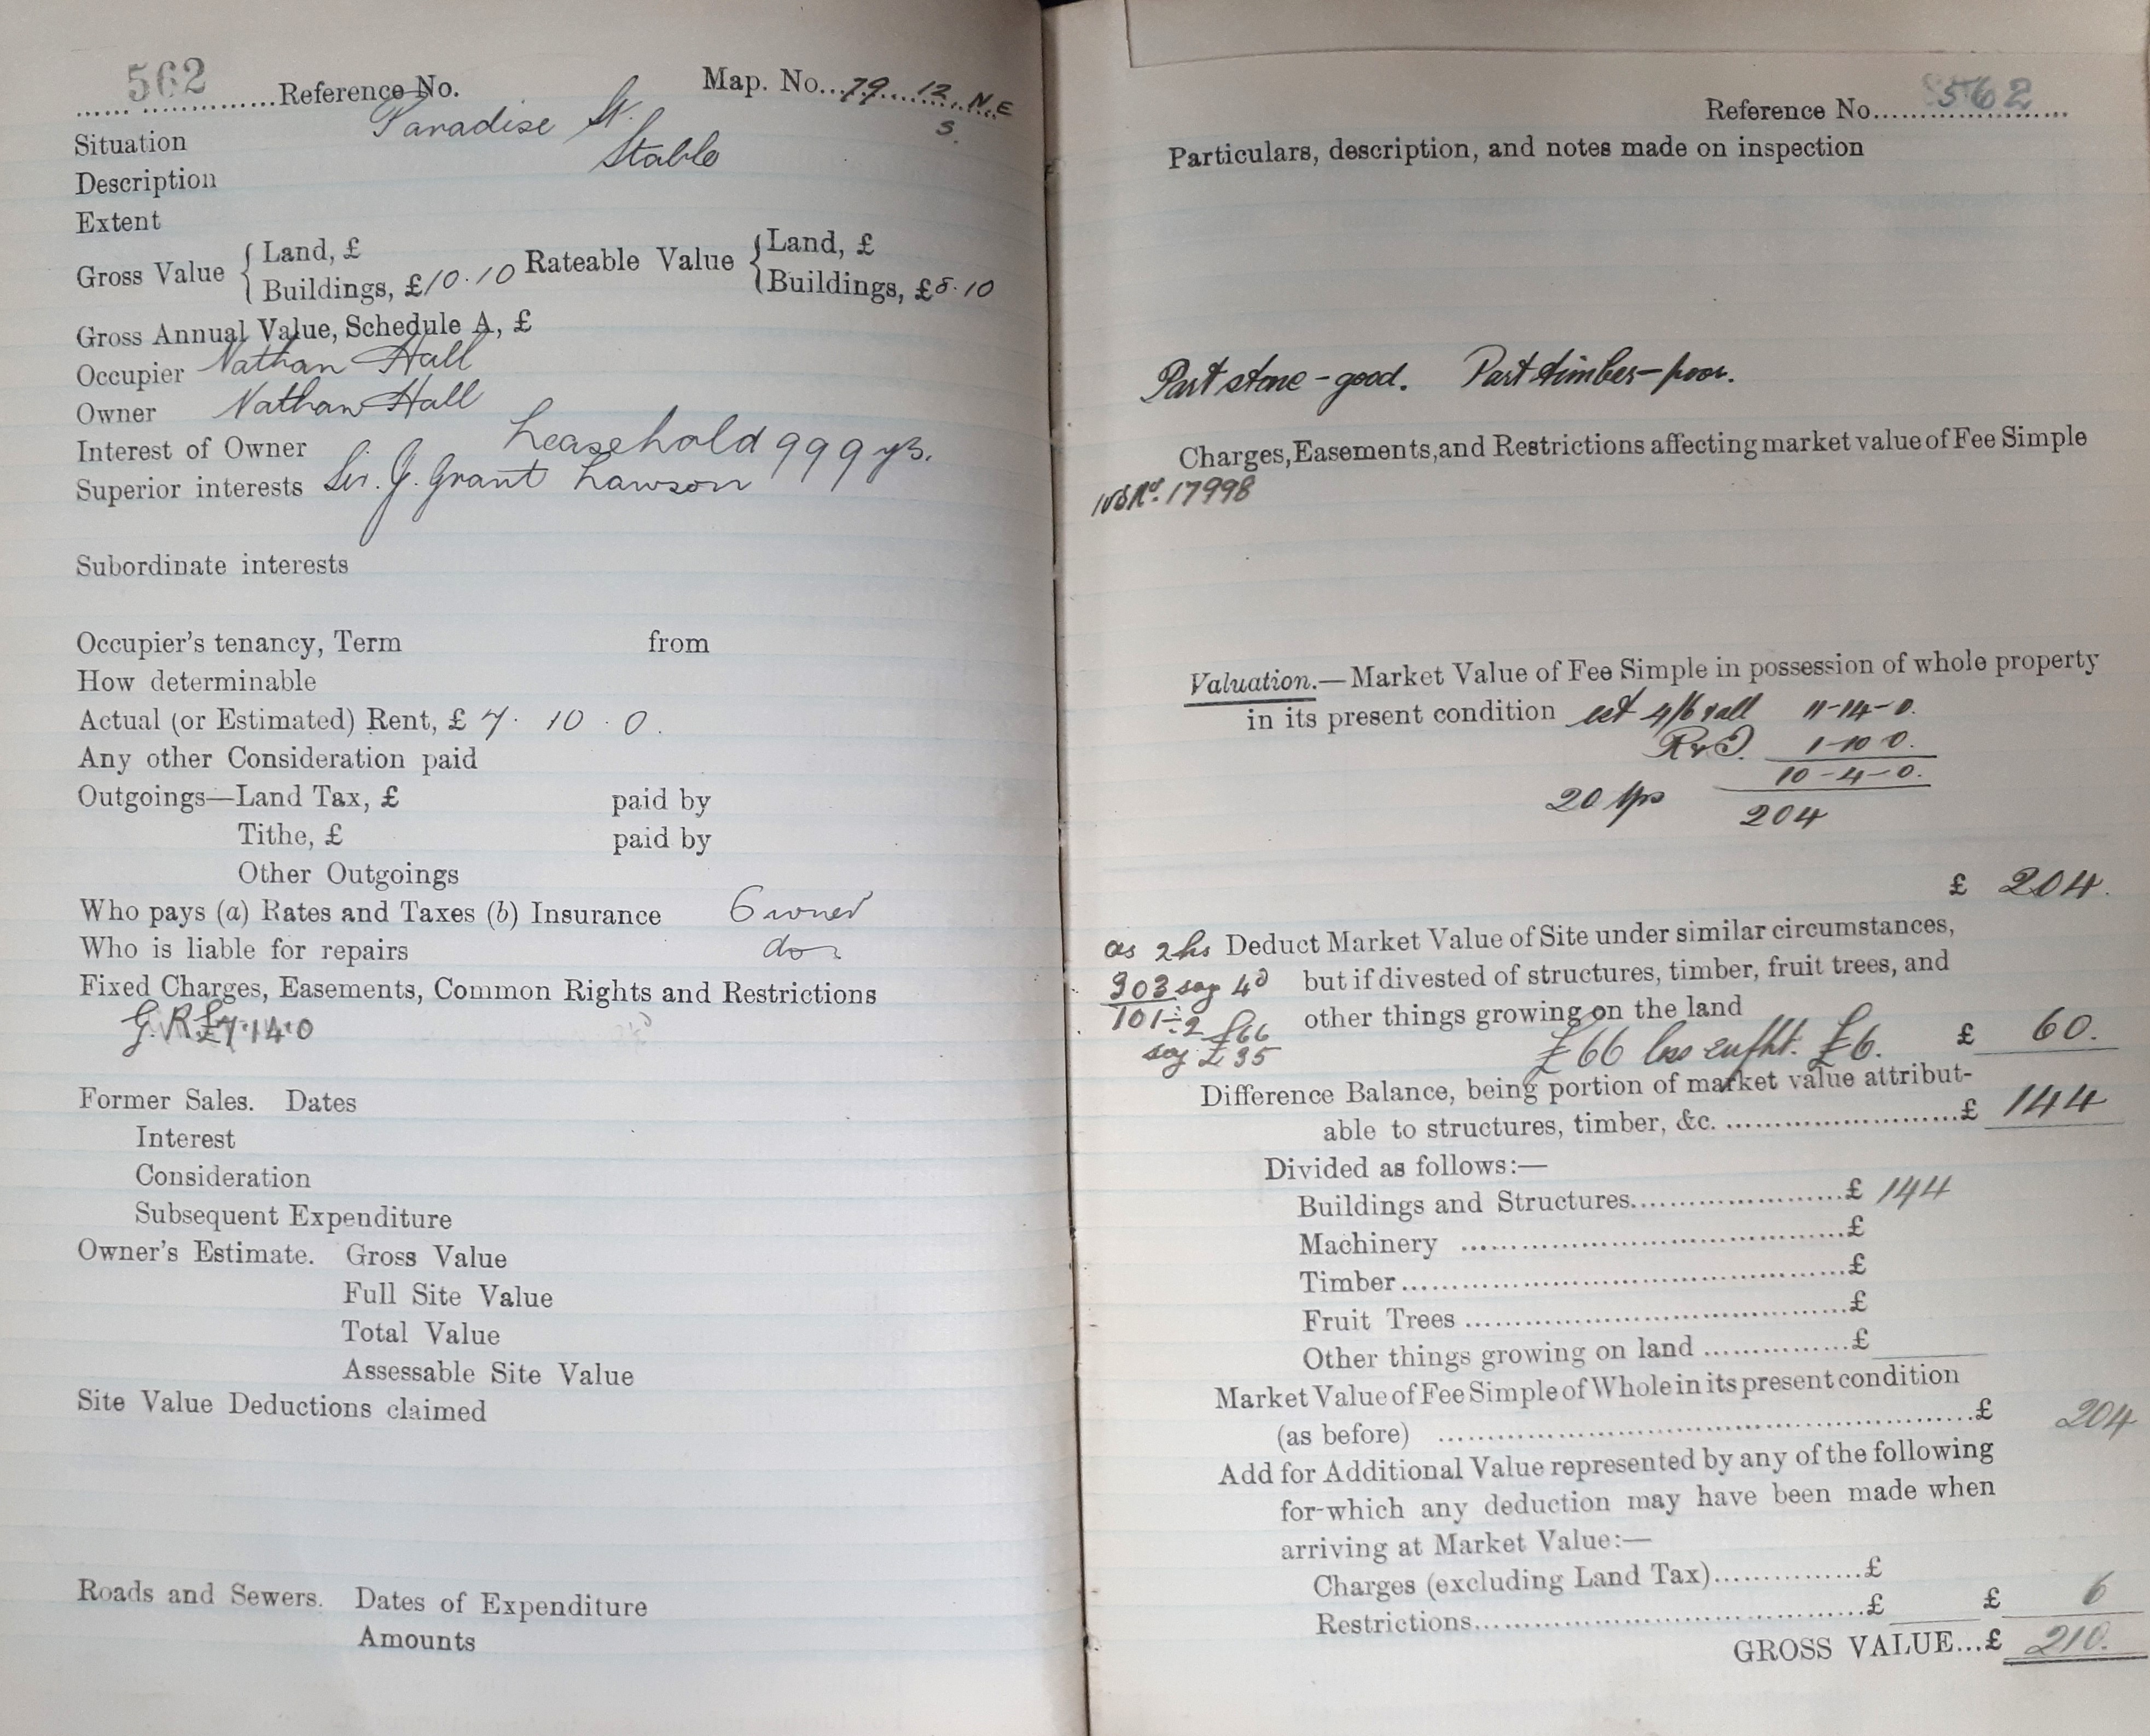 562 Reference No. Map. No. 79 12 N.E
S.
Situation Paradise St.
Description Stable
Extent
Gross Value { Land, £ Rateable Value { Land, £
Buildings, £10.10 Buildings, £8.10
Gross Annual Value, Schedule A, £
Occupier Nathan Hall
Owner Nathan Hall
Interest of Owner Leasehold 999 yrs.
Superior interests Sir. J. Grant Lawson
Subordinate interests
Occupier's tenancy, Term from
How determinable
Actual (or Estimated) Rent, £ 7. 10. 0.
Any other Consideration paid
Outgoings—Land Tax, £ paid by
Tithe, £ paid by
Other Outgoings
Who pays (a) Rates and Taxes (b) Insurance Owner
Who is liable for repairs do
Fixed Charges, Easements, Common Rights and Restrictions
G. R. £7.14.0
Former Sales. Dates
Interest
Consideration
Subsequent Expenditure
Owner's Estimate. Gross Value
Full Site Value
Total Value
Assessable Site Value
Site Value Deductions claimed
Roads and Sewers. Dates of Expenditure
Amounts
Reference No. 562
Particulars, description, and notes made on inspection
Part stone - good. Part timber - poor.
Charges, Easements, and Restrictions affecting market value of Fee Simple
17998
Valuation.—Market Value of Fee Simple in possession of whole property
in its present condition est 4/6 11-14-0.
1-10 0.
10-4-0.
20 yps 204
£ 204.
as 2hs Deduct Market Value of Site under similar circumstances,
303 say 4d but if divested of structures, timber, fruit trees, and
101÷2 £66 other things growing on the land
say £35 £66 less £6. £ 60.
Difference Balance, being portion of market value attribut-
able to structures, timber, &c. £ 144
Divided as follows:—
Buildings and Structures £ 144
Machinery £
Timber £
Fruit Trees £
Other things growing on land £
Market Value of Fee Simple of Whole in its present condition
(as before) £ 204
Add for Additional Value represented by any of the following
for which any deduction may have been made when
arriving at Market Value:—
Charges (excluding Land Tax) £
Restrictions £ £ 6
GROSS VALUE...£ 210.